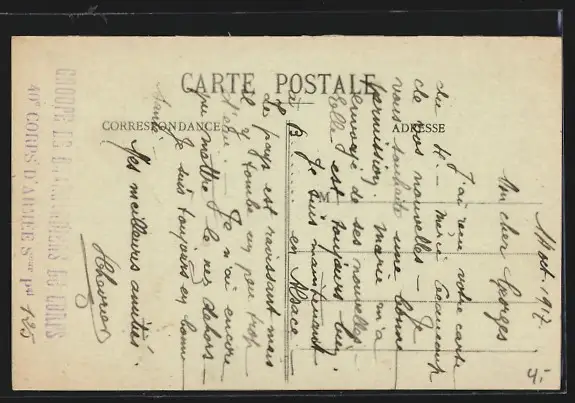 CARTE POSTALE
CORRESPONDANCE
ADRESSE
M
oct. 1917
Mon cher Georges
J'ai reçu votre carte
du 4 — merci beaucoup
de vos nouvelles — Je
vous souhaite une bonne
permission. Marie m'a
envoyé de ses nouvelles —
Elle est toujours bien.
Je suis maintenant
à B...... en Alsace.
Le pays est ravissant mais
il y tombe un peu trop
d'eau. — Je n'ai encore
pu mettre le nez dehors —
Je suis toujours en bonne
santé.
Mes meilleures amitiés.
GROUPE DE BRANCARDIERS DE CORPS
40e CORPS D'ARMÉE Sect pal 125
4.-